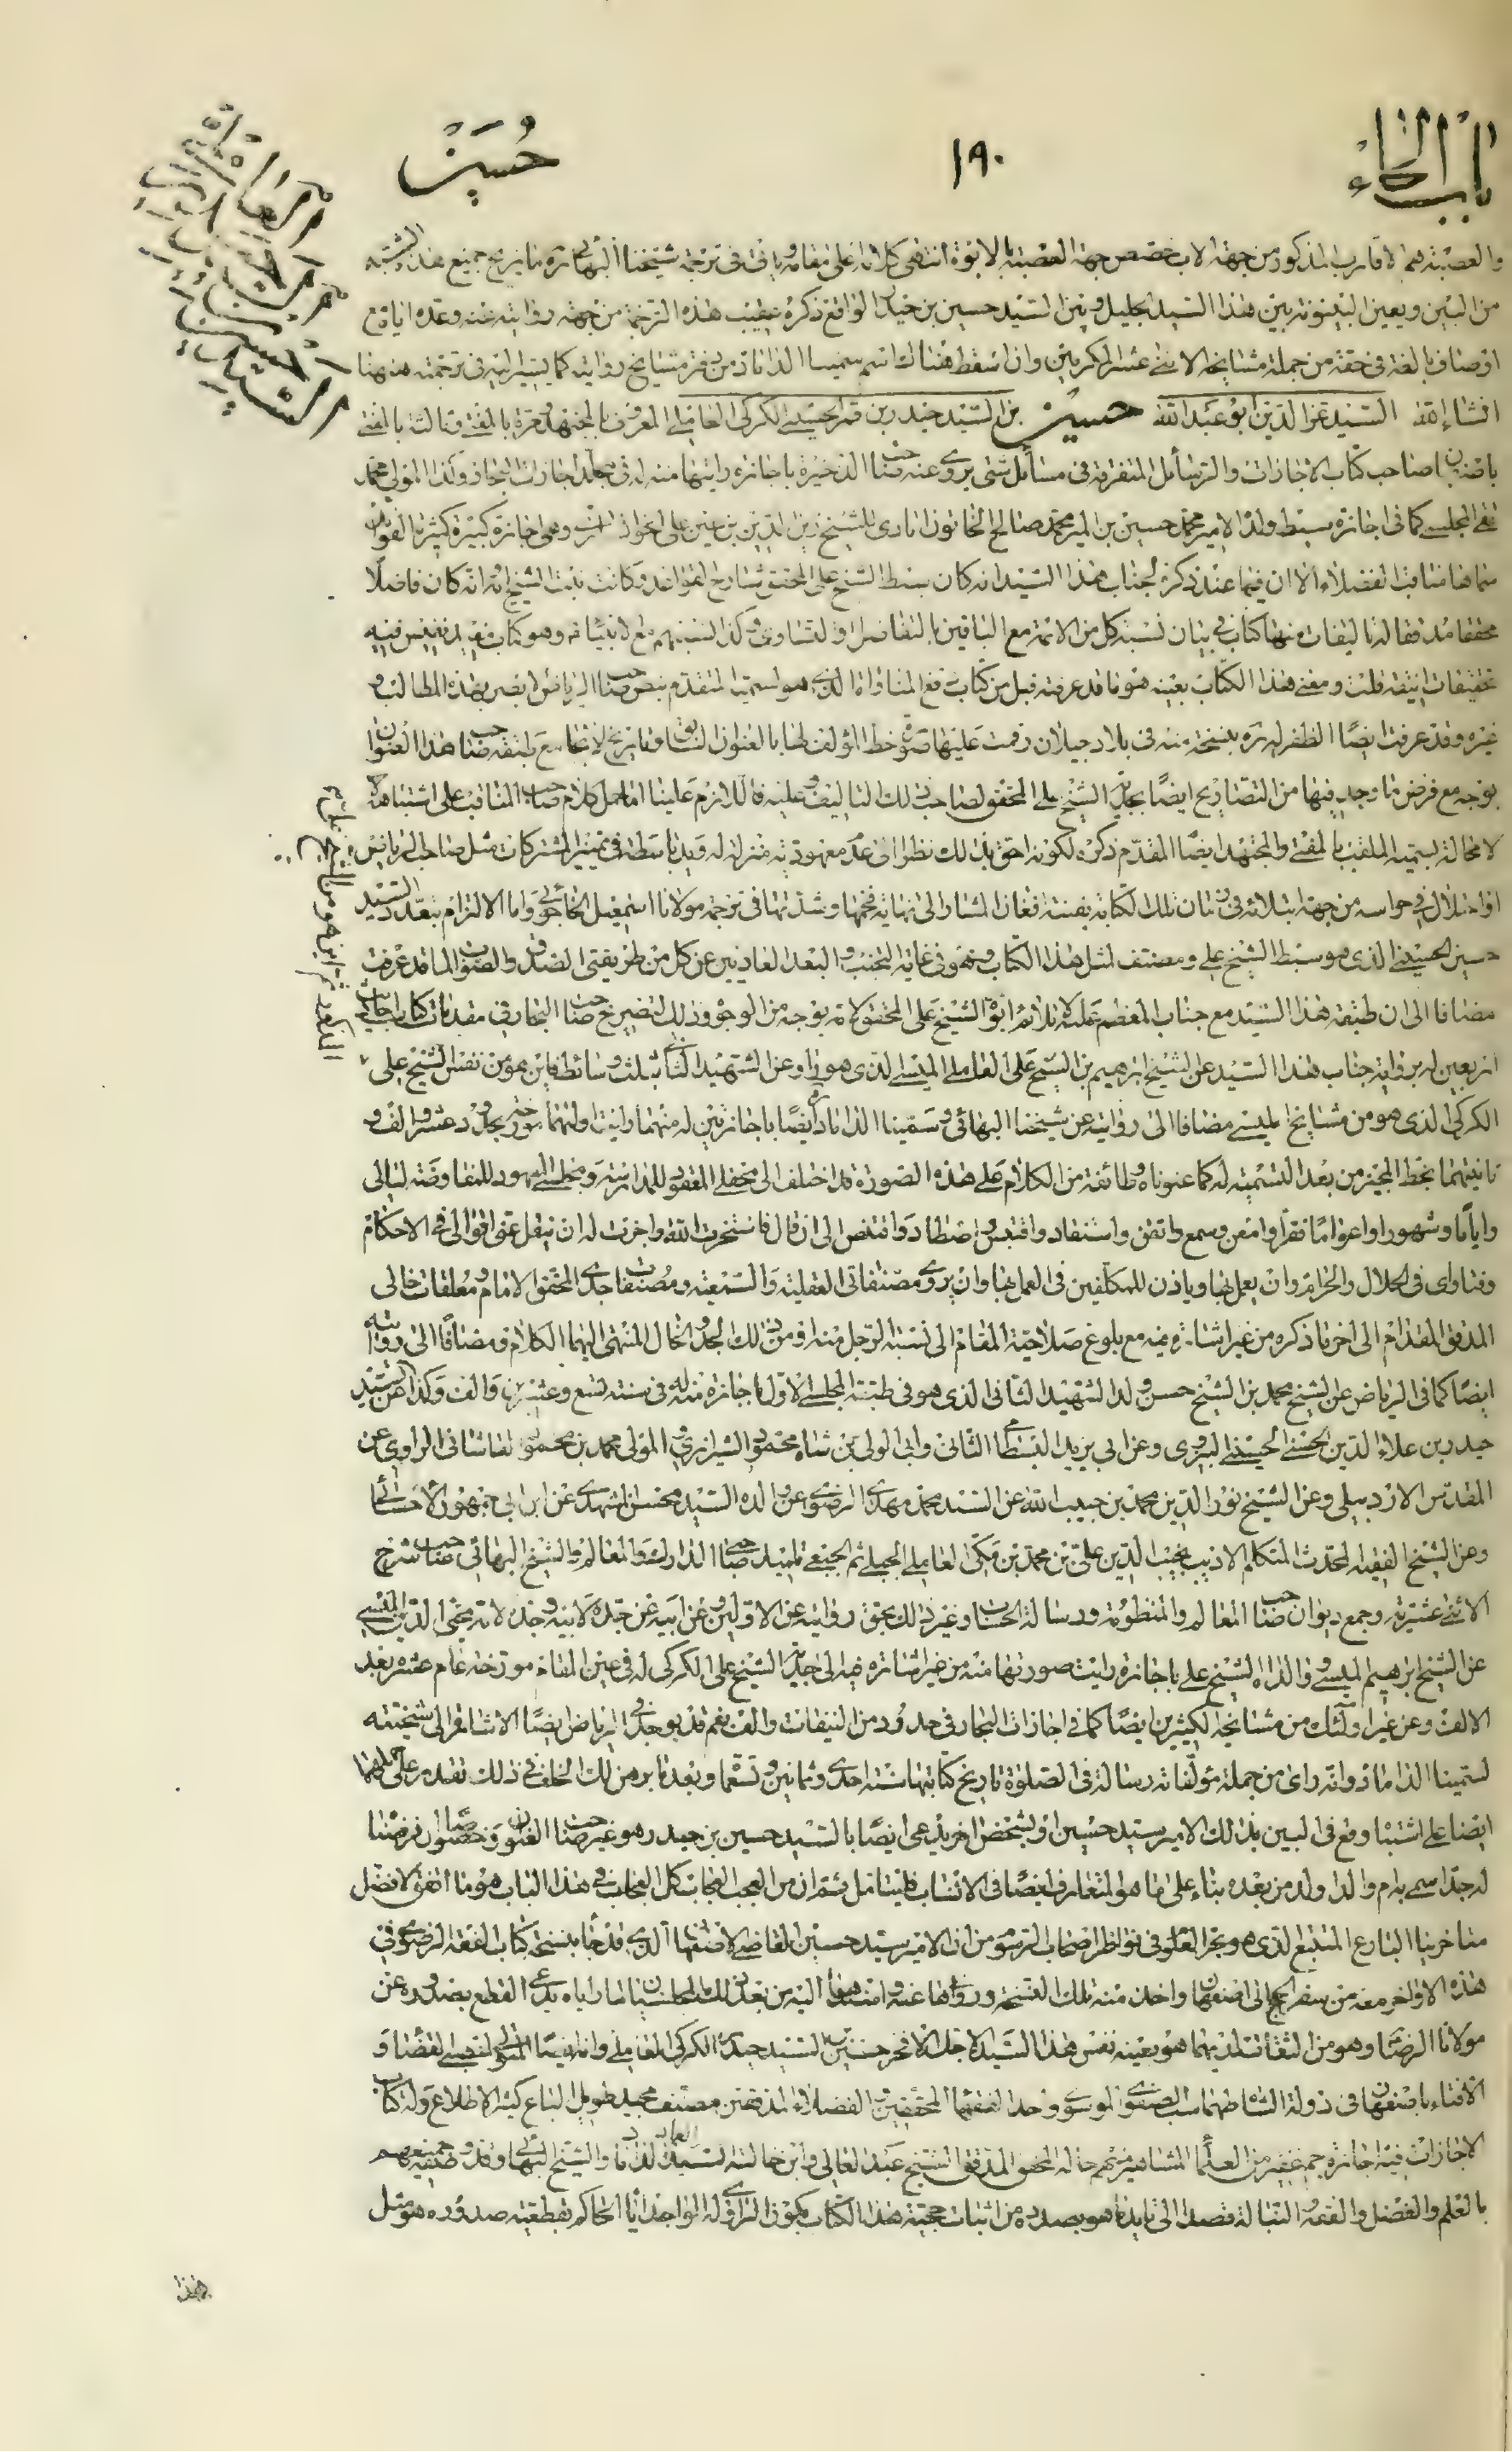 باب الحاء
١٩٠
حسين
والعصبة هم الاقارب الذكور من جهة الاب خصص جهة العصبة بالابوة انتهى كلامه على مقامه وياتى فى ترجمة شيخنا البهائى ره ما يريح جميع هذه الشبه
من البين ويعين البينونة بين هذا السيد الجليل وبين السيد حسين بن حيدر الواقع ذكره عقيب هذه الترجمة من جهة روايته عنه وعده اياه مع
اوصاف بالغة فى حقه من جملة مشايخه الاثنى عشر الكركيين وان اسقط هناك اسم سمينا الداماد من دفتر مشايخ روايته كما يشير اليه فى ترجمته من هنا
انشاء الله السيد عز الدين ابو عبد الله حسين بن السيد حيدر بن قمر الحسينى الكركى العاملى المعروف بالمجتهد ومرة بالمفتى وثالث بالمفتى
باصفهان صاحب كتاب الاجازات والرسائل المتفرقة فى مسائل شتى يروى عنه صاحب الذخيرة باجازة رايتها منه له فى مجلد اجازات البحار وكذا المولى محمد
تقى المجلسى كما فى اجازة سبط ولده الامير محمد حسين بن المير محمد صالح الخاتون ابادى للشيخ زين الدين بن عين على الخوانسارى وهى اجازة كبيرة كثيرة الفوائد
سماها مناقب الفضلاء الا ان فيما عند ذكره لجناب هذا السيد انه كان سبط الشيخ على المحقق شارح القواعد وكانت بنت الشيخ امه انه كان فاضلا
محققا مدققا له تاليفات ومنها كتاب فى بيان نسبة كل من الائمة مع الباقين بالتفاضل او التساوى وكذا نسبتهم مع الانبياء وهو كتاب مفيد نفيس فيه
تحقيقات انيقة قلت ومعنى هذا الكتاب بعينه هو ما قد عرفته قبل من كتاب رفع المناواة الذى هو لسميه المتقدم بنص صاحب الرياض البصير بهذه المطالب و
غيره وقد عرفت ايضا الظفر له ره بنسخة منه فى بلاد جيلان رقمت عليها صورة خط المؤلف لها بالعنوان السابق وتاريخ لا يجامع طبقة صاحب هذا العنوان
بوجه مع فرض ما وجد فيها من التصاريح ايضا بجدية الشيخ على المحقق لصاحب ذلك التاليف وعليه فاللازم علينا اما حمل كلام صاحب المناقب على اشتباهه
لا محالة بسميه الملقب بالمفتى والمجتهد ايضا المقدم ذكره لكونه احق بذلك نظرا الى عدم معهودية منزلة له ويد باسطة فى تمييز المشتركات مثل صاحب الرياض
او اختلال فى حواسه من جهة ابتلائه فى زمان تلك الكتابة بفتنة افغان المشار الى نهاية فخمها وشدتها فى ترجمة مولانا اسمعيل الخاجوئى واما الالتزام بتعدد السيد
حسين الحسينى الذى هو سبط الشيخ على ومصنف لمثل هذا الكتاب وهو فى غاية التجنب والبعد العاديين عن كل من طريقتى الصدق والصواب لما قد عرفت
مضافا الى ان طبقة هذا السيد مع جناب المعظم عليه لا تلائم ابوة الشيخ على المحقق لامه بوجه من الوجوه وذلك لتصريح صاحب البحار فى مقدمات كتاب
اربعين له برواية جناب هذا السيد عن الشيخ ابرهيم بن الشيخ على العاملى الميسى الذى هو راو عن الشهيد الثانى بثلث وسائط فاين هو من نفس الشيخ على
الكركى الذى هو من مشايخ الميسى مضافا الى روايته عن شيخنا البهائى وسمينا الداماد ايضا باجازتين له منهما رايت اوليهما مؤرخة بحدود عشر والف و
ثانيتهما بخط المجيز من بعد التسمية له كما عنوناه وطائفة من الكلام على هذه الصورة قد اختلف الى محفلى المعقود للمدارسة ومجلسى المعهود للمفاوضة ليالى
واياما وشهورا واعواما فقرأ وامعن وسمع واتقن واستفاد واقتبس واصطاد واقتنص الى ان قال فاستخرت الله واجزت له ان ينقل عنى اقوالى فى الاحكام
وفتاواى فى الحلال والحرام وان يعمل بها وياذن للمكلفين فى العمل بها وان يروى مصنفاتى العقلية والسمعية ومصنفات جدى المحقق الامام ومعلقات خالى
المدقق المقدام الى اخر ما ذكره من غير اشارة فيه مع بلوغ صلاحية المقام الى نسبة الرجل منه او من ذلك الجد والخال المنتهى اليهما الكلام ومضافا الى روايته
ايضا كما فى الرياض عن الشيخ محمد بن الشيخ حسن ولد الشهيد الثانى الذى هو فى طبقة المجلسى الاول باجازة منه له فى سنة تسع وعشرين والف وكذا عن السيد
حيدر بن علاء الدين الحسنى الحسينى البيزوى وعن ابى يزيد البسطامى الثانى وابى الولى بن شاه محمود الشيرازى والمولى محمد بن محمود القاشانى الراوى عن
المقدس الاردبيلى وعن الشيخ نور الدين محمد بن حبيب الله عن السيد محمد مهدى الرضوى عن والده السيد محسن المشهدى عن ابن ابى جمهور الاحسائى
وعن الشيخ الفقيه المحدث المتكلم الاديب نجيب الدين على بن محمد بن مكى العاملى الجبلى ثم الجبعى تلميذ صاحبى المدارك والمعالم والشيخ البهائى صاحب شرح
الاثنى عشرية وجمع ديوان صاحب المعالم والمنظومة ورسالة الحساب وغير ذلك بحق روايته عن الاولين وعن ابيه عن جده لابيه وجده لامه محيى الدين الميسى
عن الشيخ ابرهيم الميسى ووالده الشيخ على باجازة رايت صورتها منه من غير اشارة فيه الى جدية الشيخ على الكركى له فى عين المقام مورخة عام عشرة بعد
الالف وعن غير اولئك من مشايخه الكثيرين ايضا كما فى اجازات البحار فى حدود من النيفات والالف نعم قد يوجد فى الرياض ايضا الاشارة الى شيخيته
لسمينا الداماد وانه راى من جملة مؤلفاته رسالة فى الصلوة تاريخ كتابتها سنة احدى وثمانين وتسعمأة وبعد ما برهن لك الخلف فى ذلك تقدر على حملهما
ايضا على اشتباه وقع فى البين بذلك الامير سيد حسين او بشخص اخر يدعى ايضا بالسيد حسين بن حيدر هو غير صاحب العنوان وخصوصا ان فرضنا
له جدا سمى بامام والدا ولد من بعده بناء على ما هو المتعارف ايضا فى الانساب فليتامل ثم ان من العجب العجاب كل العجاب فى هذا الباب هو ما اتفق لافضل
متاخرينا البارع المتتبع الذى هو بحر العلوم فى نواظر اصحاب الرسوم من ان الامير سيد حسين القاضى الاصفهانى الذى قد جاء بنسخة كتاب الفقه الرضوى فى
هذه الاواخر معه من سفر الحج الى اصفهان واخذ منه تلك النسخة ورواها عنه وامتد هو اليه من بعد ذلك المجلسيان لما راياه يدعى القطع بصدوره عن
مولانا الرضا وهو من الثقات لديهما هو بعينه نفس هذا السيد الاجل الافخر حسين بن السيد حيدر الكركى العاملى وانه ايضا المتولى لمنصبى القضاء و
الافتاء باصفهان فى دولة الشاه طهماسب الصفوى الموسوى واحد الفقهاء المحققين والفضلاء المدققين مصنف مجيد طويل الباع كثير الاطلاع وله كتاب
الاجازات فيه اجازة جم غفير من العلماء المشاهير منهم خاله المحقق المدقق الشيخ عبد العالى وابن خالته السيد الداماد والشيخ البهائى وقد وصفه جميعهم
بالعلم والفضل والفقه والنبالة فصدا الى تاييد ما هو بصدده من اثبات حجية هذا الكتاب بكون الراوى له الواجد اياه الحاكم بقطعية صدوره هو مثل
هذا